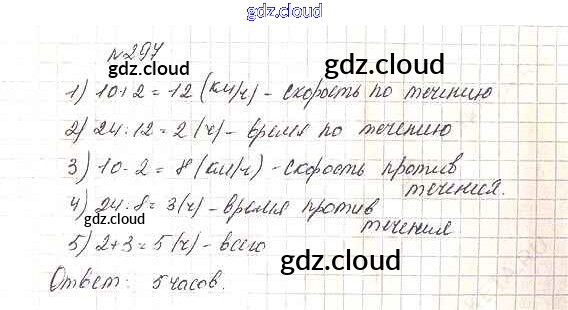 gdz.cloud
№297
gdz.cloud
gdz.cloud
1) 10+2=12 (км/ч) - скорость по течению
2) 24:12=2 (ч) - время по течению
gdz.cloud
3) 10-2=8 (км/ч) - скорость против
течения.
gdz.cloud
4) 24:8=3 (ч) - время против
gdz.cloud
течения
5) 2+3=5 (ч) - всего
gdz.cloud
Ответ: 5 часов.